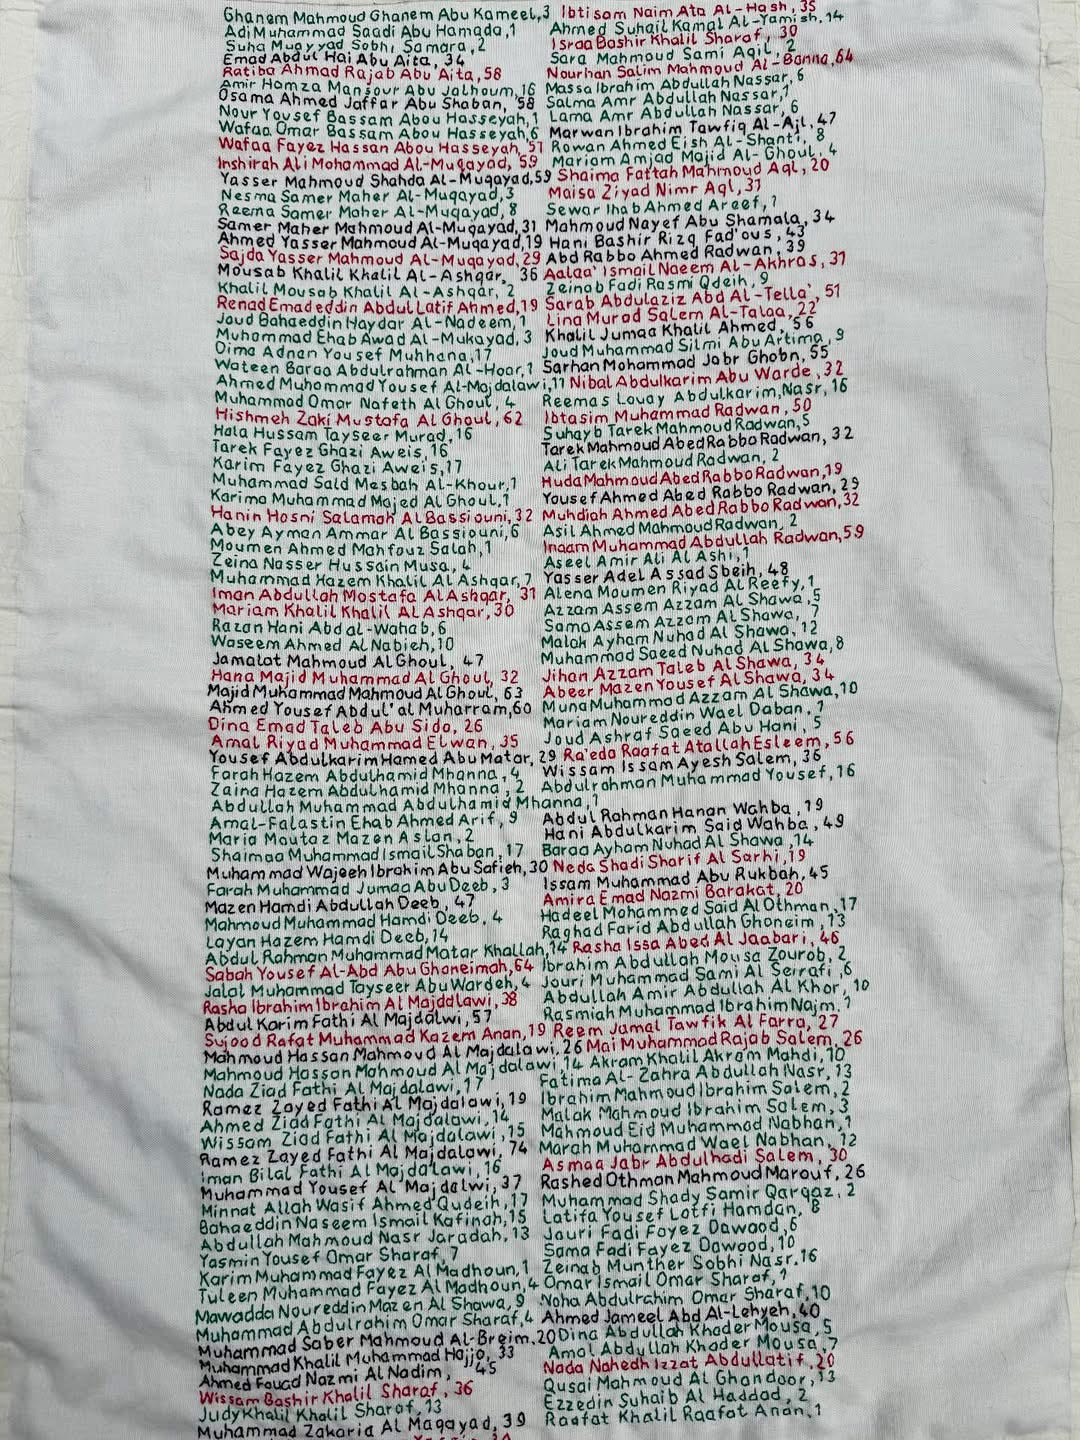 Ghanem Mahmoud Ghanem Abu Kameel,3
Adi Muhammad Saadi Abu Hamada,1
Suha Muayyad Sobhi Samara,2
Emad Abdul Hai Abu Aita, 34
Ratiba Ahmad Rajab Abu Aita,58
Amir Hamza Mansour Abu Jalhoum,16
Osama Ahmed Jaffar Abu Shaban, 58
Nour Yousef Bassam Abou Hasseyah,1
Wafaa Omar Bassam Abou Hasseyah,6
Wafaa Fayez Hassan Abou Hasseyah, 51
Inshirah Ali Mohammad Al-Muqayad, 59
Yasser Mahmoud Shahda Al-Muqayad,59
Nesma Samer Maher Al-Muqayad,3
Reema Samer Maher Al-Muqayad, 8
Samer Maher Mahmoud Al-Muqayad, 31
Ahmed Yasser Mahmoud Al-Muqayad,19
Sajda Yasser Mahmoud Al-Muqayad,29
Mousab Khalil Khalil Al-Ashqar, 36
Khalil Mousab Khalil Al-Ashqar, 2
Renad Emadeddin Abdul Latif Ahmed,19
Joud Bahaeddin Haydar Al-Nadeem,1
Muhammad Ehab Awad Al-Mukayad, 3
Dima Adnan Yousef Muhhana,17
Wateen Baraa Abdulrahman Al-Hoar,1
Ahmed Muhammad Yousef Al-Majdalawi,11
Muhammad Omar Nafeth Al Ghoul, 4
Hishmeh Zaki Mustafa Al Ghoul, 62
Hala Hussam Tayseer Murad,16
Tarek Fayez Ghazi Aweis,16
Karim Fayez Ghazi Aweis,17
Muhammad Said Mesbah Al-Khour,1
Karima Muhammad Majed Al Ghoul,1
Hanin Hosni Salamah Al Bassiouni,32
Abey Ayman Ammar Al Bassiouni,6
Moumen Ahmed Mahfouz Salah,1
Zeina Nasser Hussain Musa, 4
Muhammad Hazem Khalil Al Ashqar,7
Iman Abdullah Mostafa Al Ashqar, 31
Mariam Khalil Khalil Al Ashqar, 30
Razan Hani Abd al-Wahab, 6
Waseem Ahmed Al Nabieh,10
Jamalat Mahmoud Al Ghoul, 47
Hana Majid Muhammad Al Ghoul, 32
Majid Muhammad Mahmoud Al Ghoul, 63
Ahmed Yousef Abdul'al Muharram,60
Dina Emad Taleb Abu Sido, 26
Amal Riyad Muhammad Elwan, 35
Yousef Abdulkarim Hamed Abu Matar, 29
Farah Hazem Abdulhamid Mhanna, 4
Zaina Hazem Abdulhamid Mhanna, 2
Abdullah Muhammad Abdulhamid Mhanna,1
Amal-Falastin Ehab Ahmed Arif, 9
Maria Moutaz Mazen Aslan, 2
Shaimaa Muhammad Ismail Shaban, 17
Muhammad Wajeeh Ibrahim Abu Safieh,30
Farah Muhammad Jumaa Abu Deeb, 3
Mazen Hamdi Abdullah Deeb, 47
Mahmoud Muhammad Hamdi Deeb, 4
Layan Hazem Hamdi Deeb,14
Abdul Rahman Muhammad Matar Khallah,14
Sabah Yousef Al-Abd Abu Ghoneimah,64
Jalal Muhammad Tayseer Abu Wardeh, 4
Rasha Ibrahim Ibrahim Al Majdalawi, 38
Abdul Karim Fathi Al Majdalwi, 57
Sujood Rafat Muhammad Kazem Anan,19
Mahmoud Hassan Mahmoud Al Majdalawi, 26
Mahmoud Hassan Mahmoud Al Majdalawi, 14
Nada Ziad Fathi Al Majdalawi, 17
Ramez Zayed Fathi Al Majdalawi, 19
Ahmed Ziad Fathi Al Majdalawi, 14
Wissam Ziad Fathi Al Majdalawi, 15
Ramez Zayed Fathi Al Majdalawi, 74
Iman Bilal Fathi Al Majdalawi, 16
Muhammad Yousef Al Majdalwi, 37
Minnat Allah Wasif Ahmed Qudeih,17
Bahaeddin Naseem Ismail Kafinah,15
Abdullah Mahmoud Nasr Jaradah, 13
Yasmin Yousef Omar Sharaf, 7
Karim Muhammad Fayez Al Madhoun,1
Tuleen Muhammad Fayez Al Madhoun,4
Mawadda Noureddin Mazen Al Shawa, 9
Muhammad Abdulrahim Omar Sharaf,4
Muhammad Saber Mahmoud Al-Breim,20
Muhammad Khalil Muhammad Hajjo, 33
Ahmed Fouad Nazmi Al Nadim, 45
Wissam Bashir Khalil Sharaf, 36
Judy Khalil Khalil Sharaf, 13
Muhammad Zakaria Al Maqayad, 39
Ibtisam Naim Ata Al-Hash, 35
Ahmed Suhail Kamal Al-Yamish,14
Israa Bashir Khalil Sharaf, 30
Sara Mahmoud Sami Aqil, 2
Nourhan Salim Mahmoud Al-Banna,64
Massa Ibrahim Abdullah Nassar, 6
Salma Amr Abdullah Nassar,1
Lama Amr Abdullah Nassar, 6
Marwan Ibrahim Tawfiq Al-Ajl, 47
Rowan Ahmed Eish Al-Shanti, 8
Mariam Amjad Majid Al-Ghoul, 4
Shaima Fattah Mahmoud Aql, 20
Maisa Ziyad Nimr Aql,31
Sewar Ihab Ahmed Areef, 1
Mahmoud Nayef Abu Shamala, 34
Hani Bashir Rizq Fad'ous, 43
Abd Rabbo Ahmed Radwan, 39
Aalaa' Ismail Naeem Al-Akhras, 31
Zeinab Fadi Rasmi Qdeih, 9
Sarab Abdulaziz Abd Al-Tella', 51
Lina Murad Salem Al-Talaa, 22
Khalil Jumaa Khalil Ahmed, 56
Joud Muhammad Silmi Abu Artima, 9
Sarhan Mohammad Jabr Ghobn, 55
Nibal Abdulkarim Abu Warde, 32
Reemas Louay Abdulkarim, Nasr, 16
Ibtasim Muhammad Radwan, 50
Suhayb Tarek Mahmoud Radwan,5
Tarek Mahmoud Abed Rabbo Radwan, 32
Ali Tarek Mahmoud Radwan, 2
Huda Mahmoud Abed Rabbo Radwan,19
Yousef Ahmed Abed Rabbo Radwan, 29
Muhdiah Ahmed Abed Rabbo Radwan,32
Asil Ahmed Mahmoud Radwan, 2
Inaam Muhammad Abdullah Radwan,59
Aseel Amir Ali Al Ashi,1
Yasser Adel Assad Sbeih, 48
Alena Moumen Riyad Al Reefy,1
Azzam Assem Azzam Al Shawa, 5
Sama Assem Azzam Al Shawa, 7
Malak Ayham Nuhad Al Shawa, 12
Muhammad Saeed Nuhad Al Shawa, 8
Jihan Azzam Taleb Al Shawa, 34
Abeer Mazen Yousef Al Shawa, 34
Muna Muhammad Azzam Al Shawa,10
Mariam Noureddin Wael Daban, 1
Joud Ashraf Saeed Abu Hani, 5
Ra'eda Raafat Atallah Esleem, 56
Wissam Issam Ayesh Salem, 36
Abdulrahman Muhammad Yousef, 16
Abdul Rahman Hanan Wahba, 19
Hani Abdulkarim Said Wahba, 49
Baraa Ayham Nuhad Al Shawa, 14
Neda Shadi Sharif Al Sarhi,19
Issam Muhammad Abu Rukbah, 45
Amira Emad Nazmi Barakat, 20
Hadeel Mohammed Said Al Othman, 17
Raghad Farid Abdullah Ghoneim, 13
Rasha Issa Abed Al Jaabari, 46
Ibrahim Abdullah Mousa Zourob, 2
Jouri Muhammad Sami Al Seirafi, 6
Abdullah Amir Abdullah Al Khor, 10
Rasmiah Muhammad Ibrahim Najm, 1
Reem Jamal Tawfik Al Farra, 27
Mai Muhammad Rajab Salem, 26
Akram Khalil Akram Mahdi, 10
Fatima Al-Zahra Abdullah Nasr, 13
Ibrahim Mahmoud Ibrahim Salem, 2
Malak Mahmoud Ibrahim Salem, 3
Mahmoud Eid Muhammad Nabhan, 1
Marah Muhammad Wael Nabhan, 12
Asmaa Jabr Abdulhadi Salem, 30
Rashed Othman Mahmoud Marouf, 26
Muhammad Shady Samir Qarqaz, 2
Latifa Yousef Lotfi Hamdan, 8
Jouri Fadi Fayez Dawood, 6
Sama Fadi Fayez Dawood, 10
Zeinab Munther Sobhi Nasr, 16
Omar Ismail Omar Sharaf, 1
Noha Abdulrahim Omar Sharaf,10
Ahmed Jameel Abd Al-Lehyeh, 40
Dina Abdullah Khader Mousa, 5
Amal Abdullah Khader Mousa, 7
Nada Nahedh Izzat Abdullatif, 20
Qusai Mahmoud Al Ghandoor, 13
Ezzedin Suhaib Al Haddad, 2
Raafat Khalil Raafat Anan,1